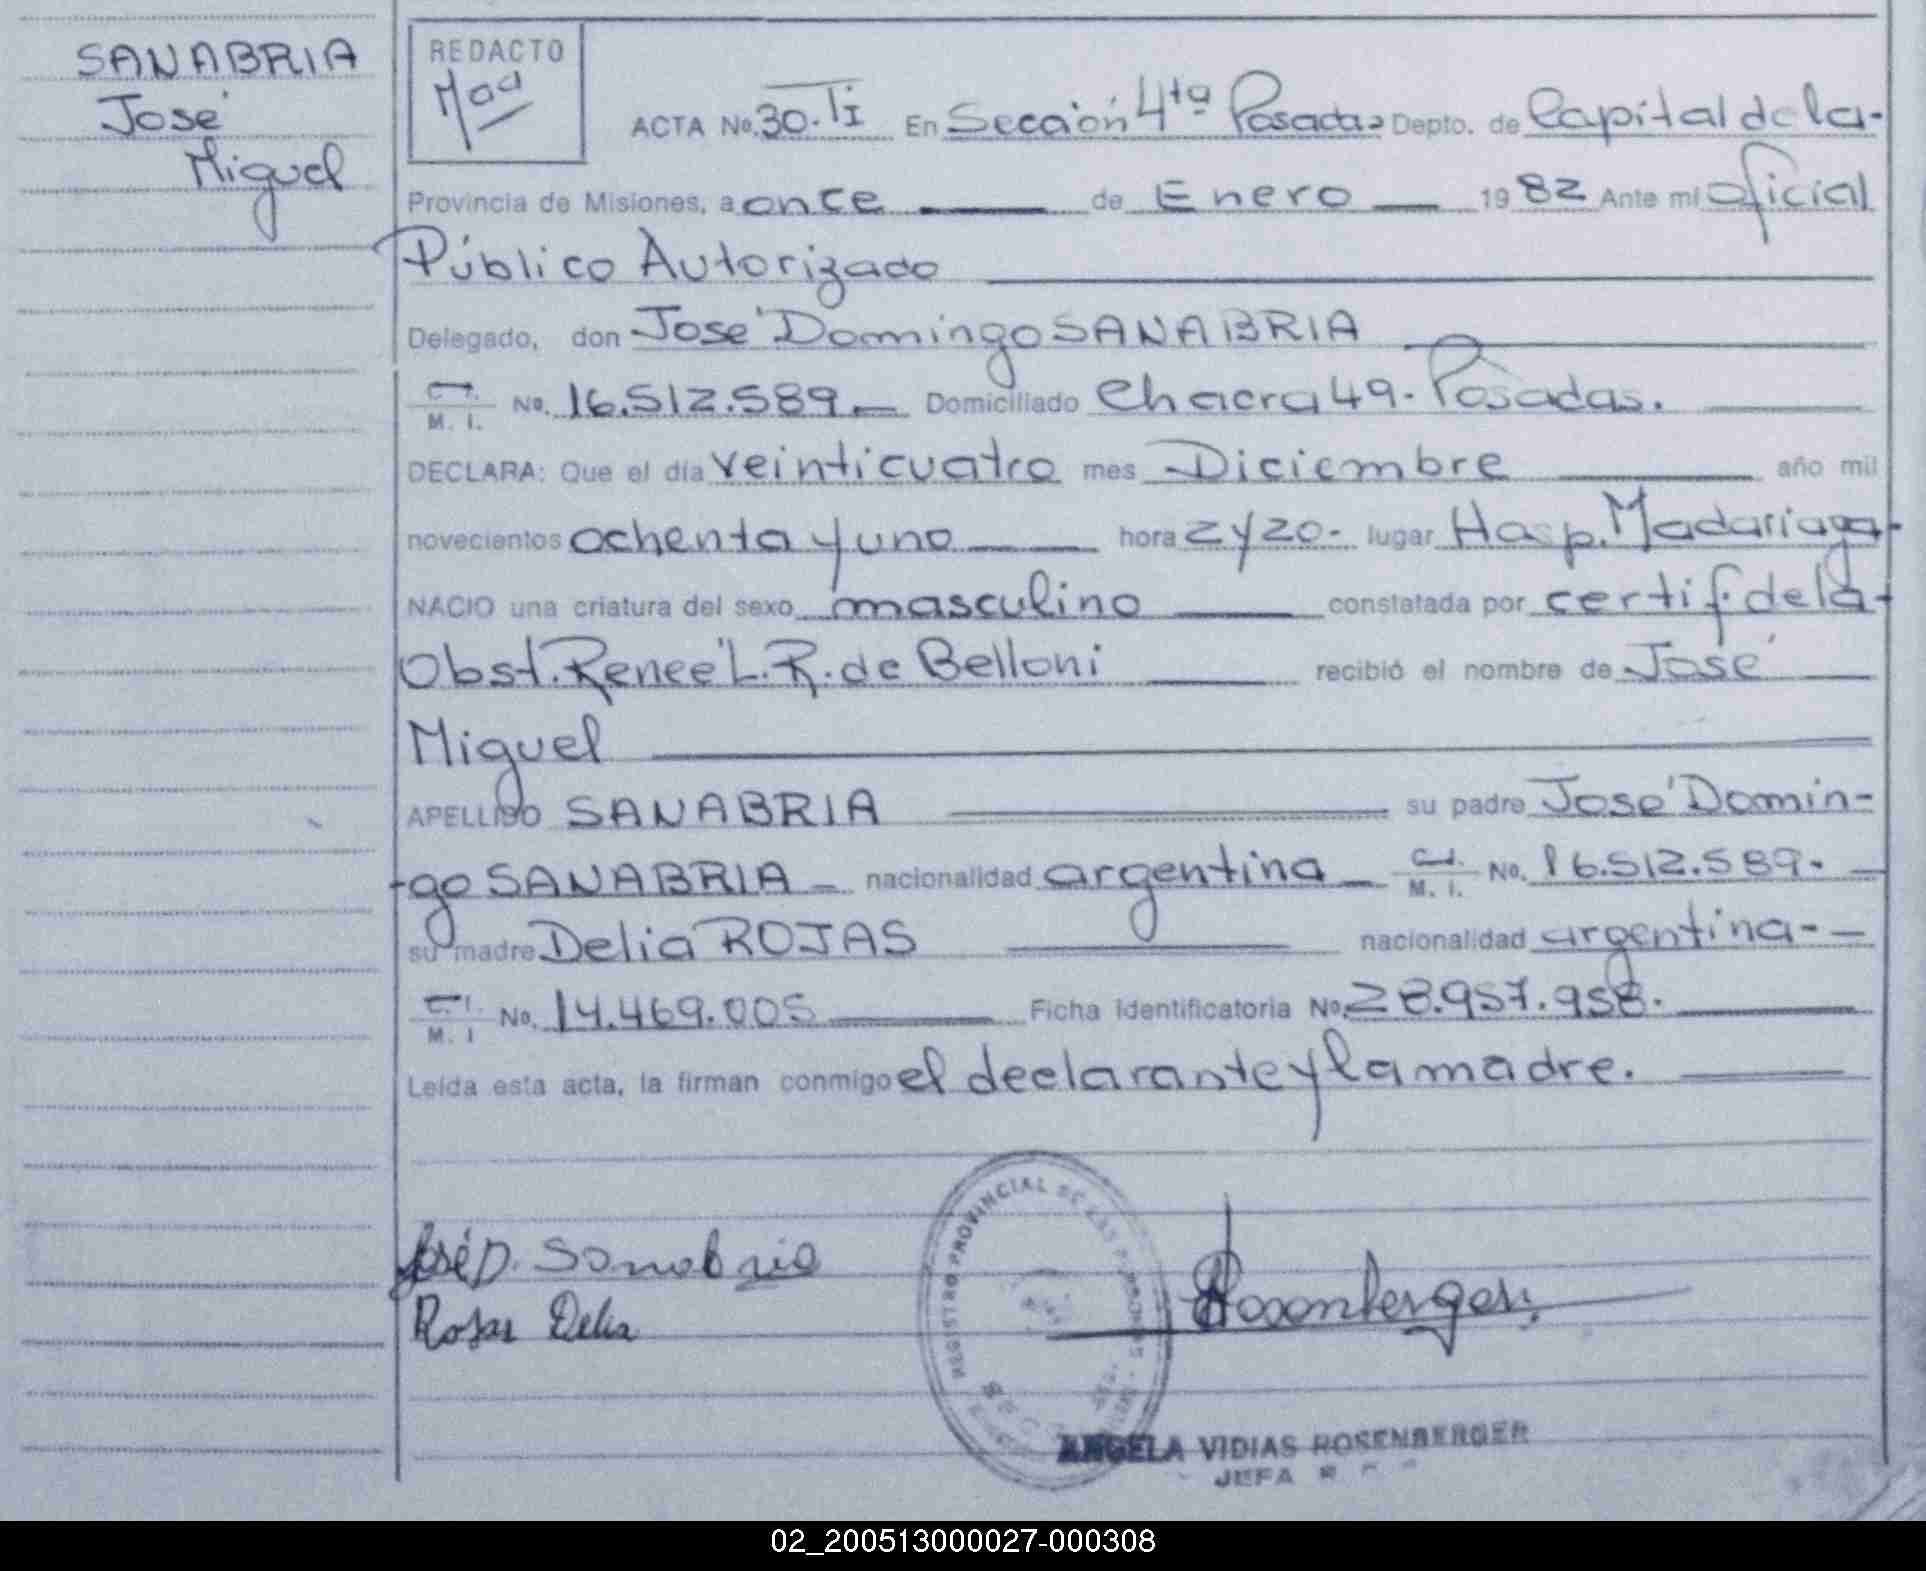 SANABRIA
José
Miguel
REDACTO
ACTA No. 30. TI En Sección 4ta Posadas Depto. de Capital de la-
Provincia de Misiones, a once de Enero 1982 Ante mi Oficial
Público Autorizado
Delegado, don José Domingo SANABRIA
C. I. M. I. No. 16.512.589.- Domiciliado Chacra 49. Posadas.
DECLARA: Que el día veinticuatro mes Diciembre año mil
novecientos ochenta y uno hora 2 y 20.- lugar Hosp. Madariaga-
NACIO una criatura del sexo masculino constatada por certif. de la-
Obst. Reneé L. R. de Belloni recibió el nombre de José
Miguel
APELLIDO SANABRIA su padre José Domin-
-go SANABRIA nacionalidad argentina C. I. M. I. No. 16.512.589.-
su madre Delia ROJAS nacionalidad argentina.-
C. I. M. I No. 14.469.005 Ficha Identificatoria No. 28.957.958.
Leída esta acta, la firman conmigo el declarante y la madre.
José D. Sanabria
Rojas Delia
Rosenberger
REGISTRO PROVINCIAL DE LAS PERSONAS
ANGELA VIDIAS ROSENBERGER
JEFA
02_200513000027-000308